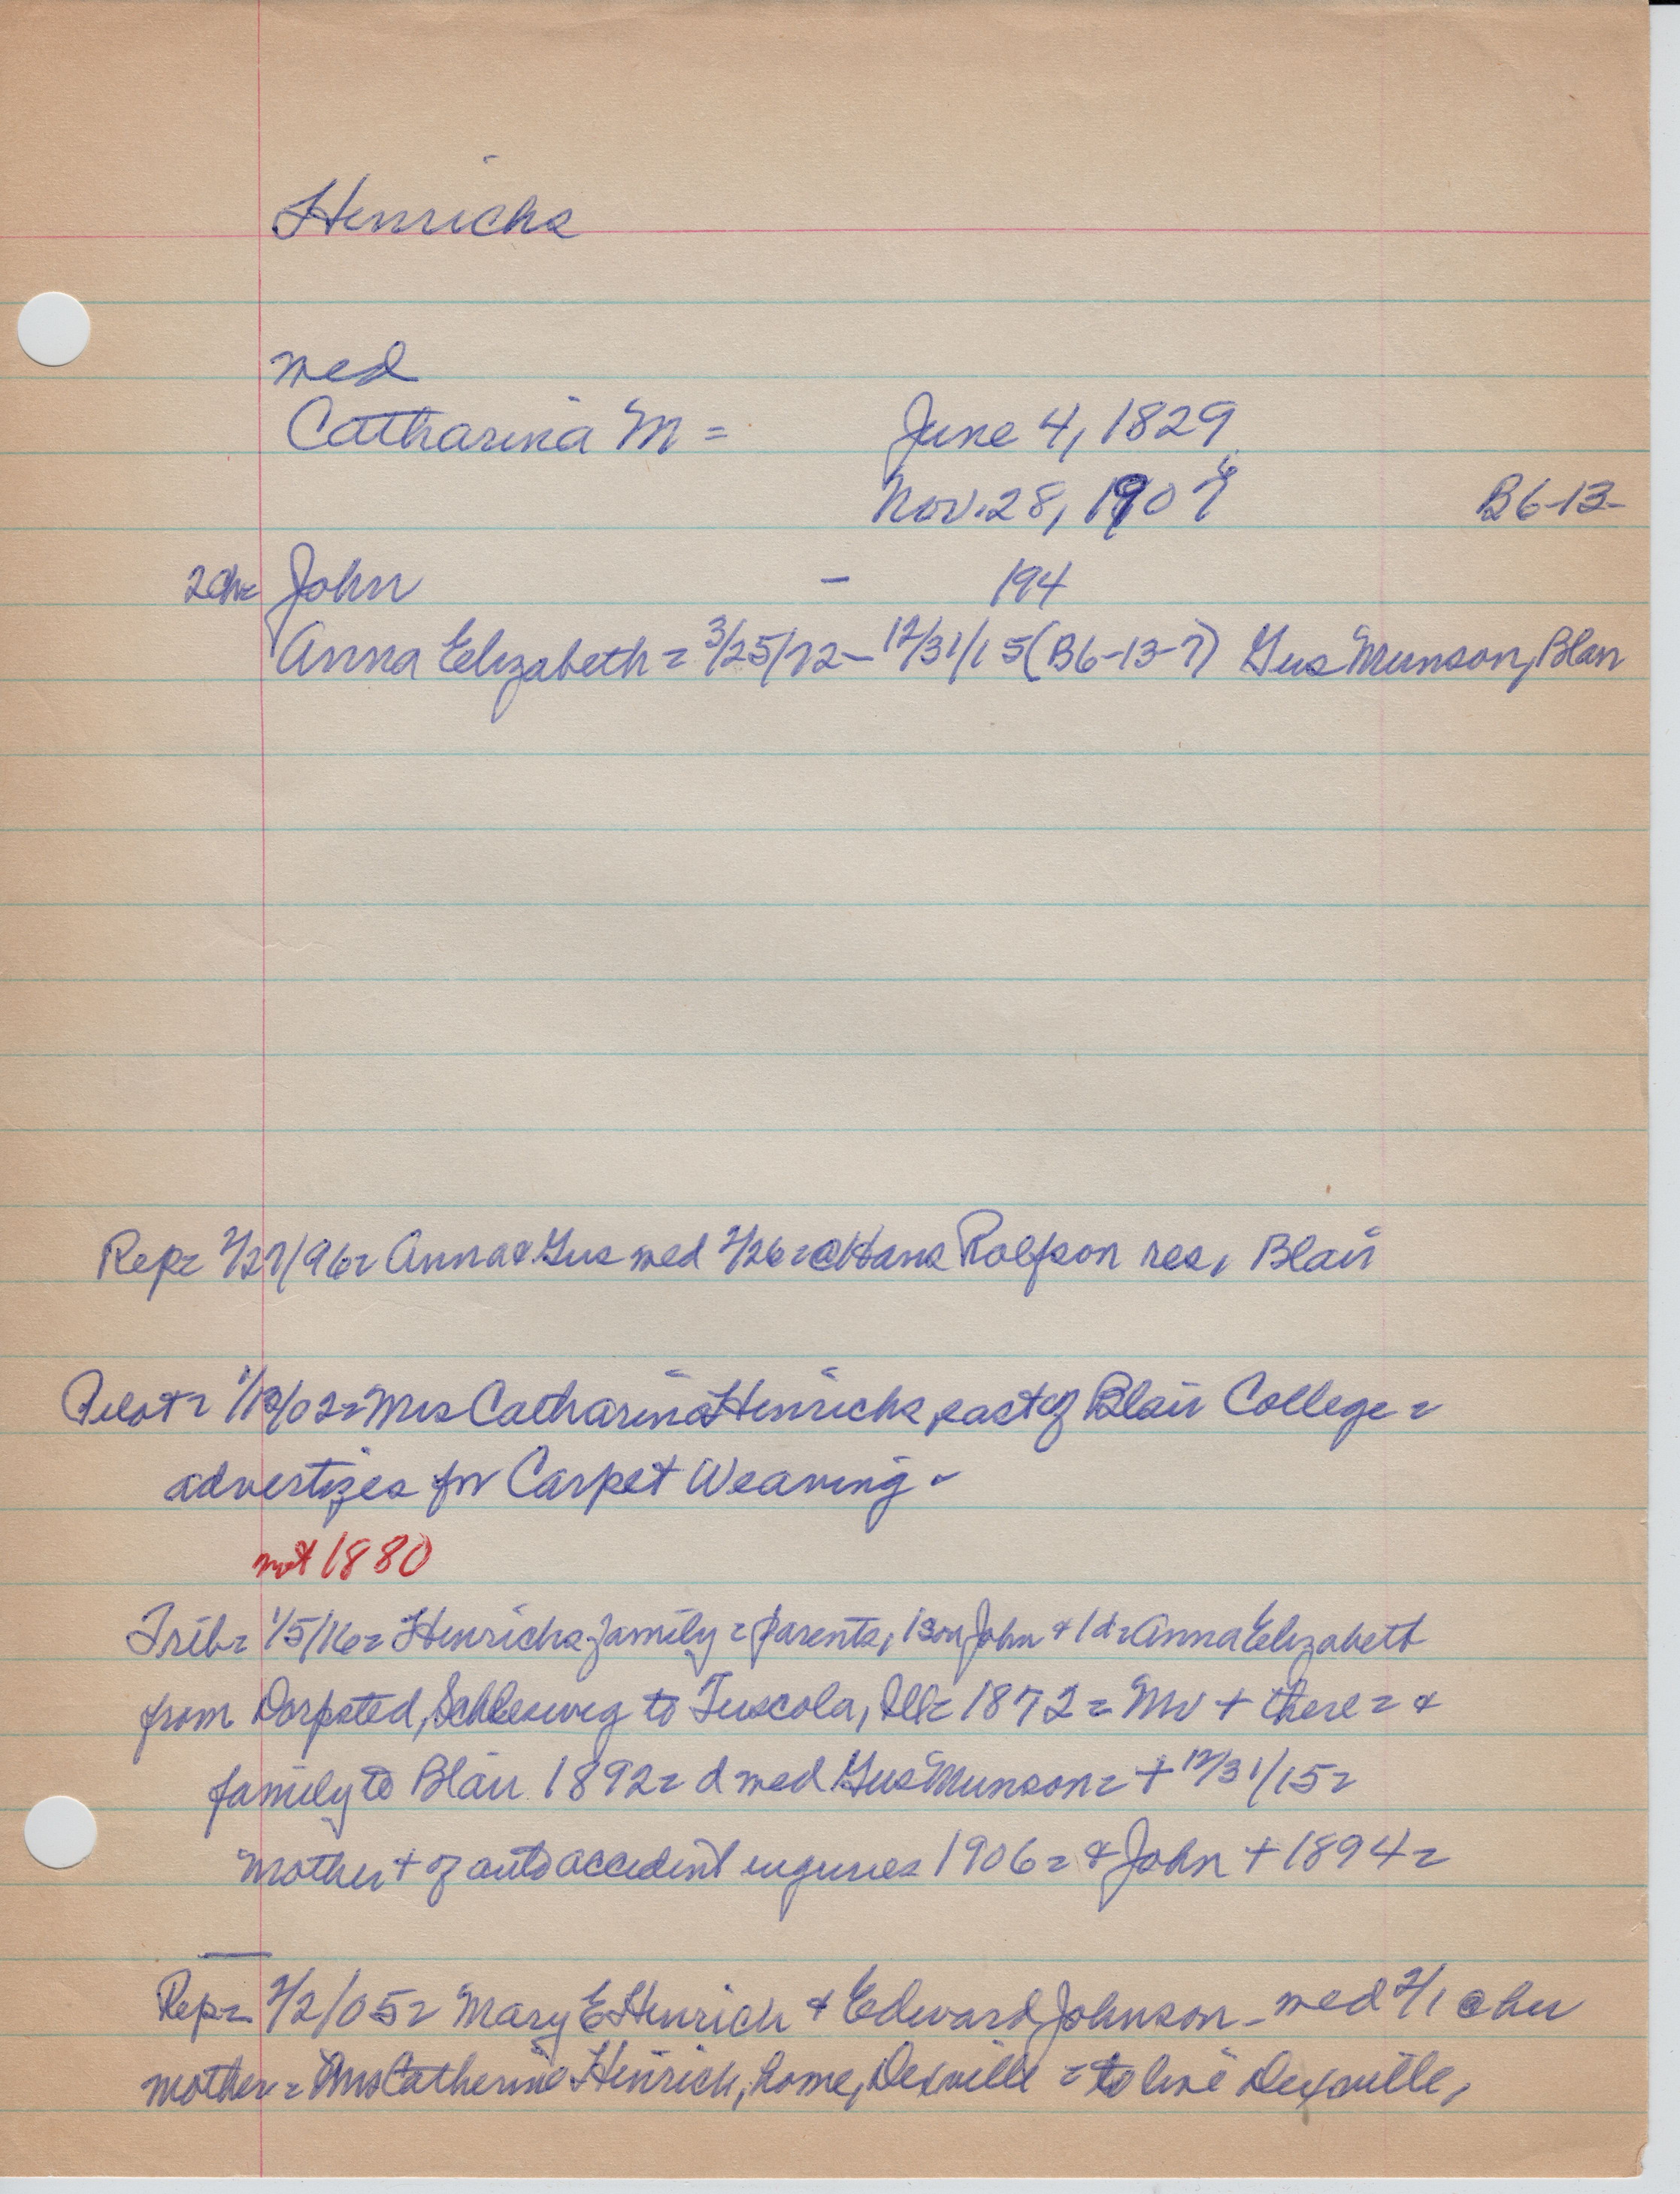 Henrichs
med
Catharina M =
June 4, 1829
Nov. 28, 190
B6-13-
2 Ch= John - 194
Anna Elizabeth = 3/25/72 - 12/31/15 (B6-13-7) Gus Munson, Blair
Rep= 2/27/96= Anna & Gus med 2/26= @ Hans Rolfson res, Blair
Pilot= /02= Mrs Catharina Henrichs, east of Blair College =
advertizes for Carpet Weaving -
not 1880
Trib= 1/5/16= Henrichs family = parents, 1 son John & 1 d= Anna Elizabeth
from Dorpsted, Schleswig to Tuscola, Ill= 1872 = Mr + there = &
family to Blair 1892= d med Gus Munson= + 12/31/15=
mother + of auto accident injuries 1906= & John + 1894=
Rep= 2/2/05= Mary E Henrich & Edward Johnson - med 2/1 @ her
mother = Mrs Catherine Henrich, home, Dexville = to live Dexville,